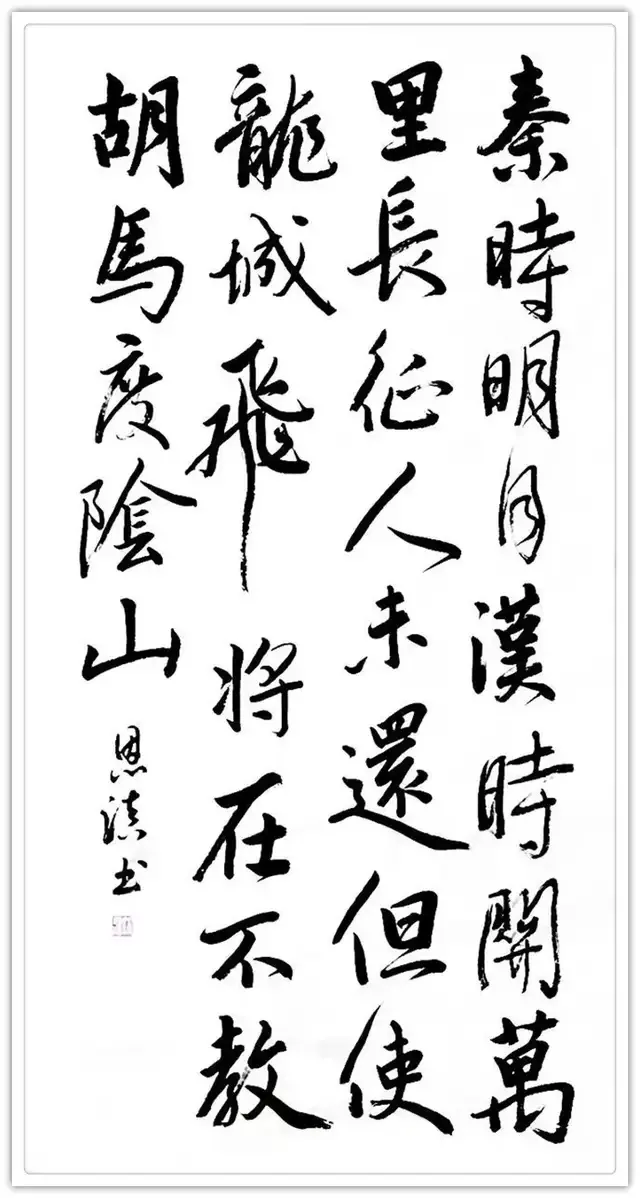 秦時明月漢時關萬
里長征人未還但使
龍城飛將在不教
胡馬度陰山
恩书